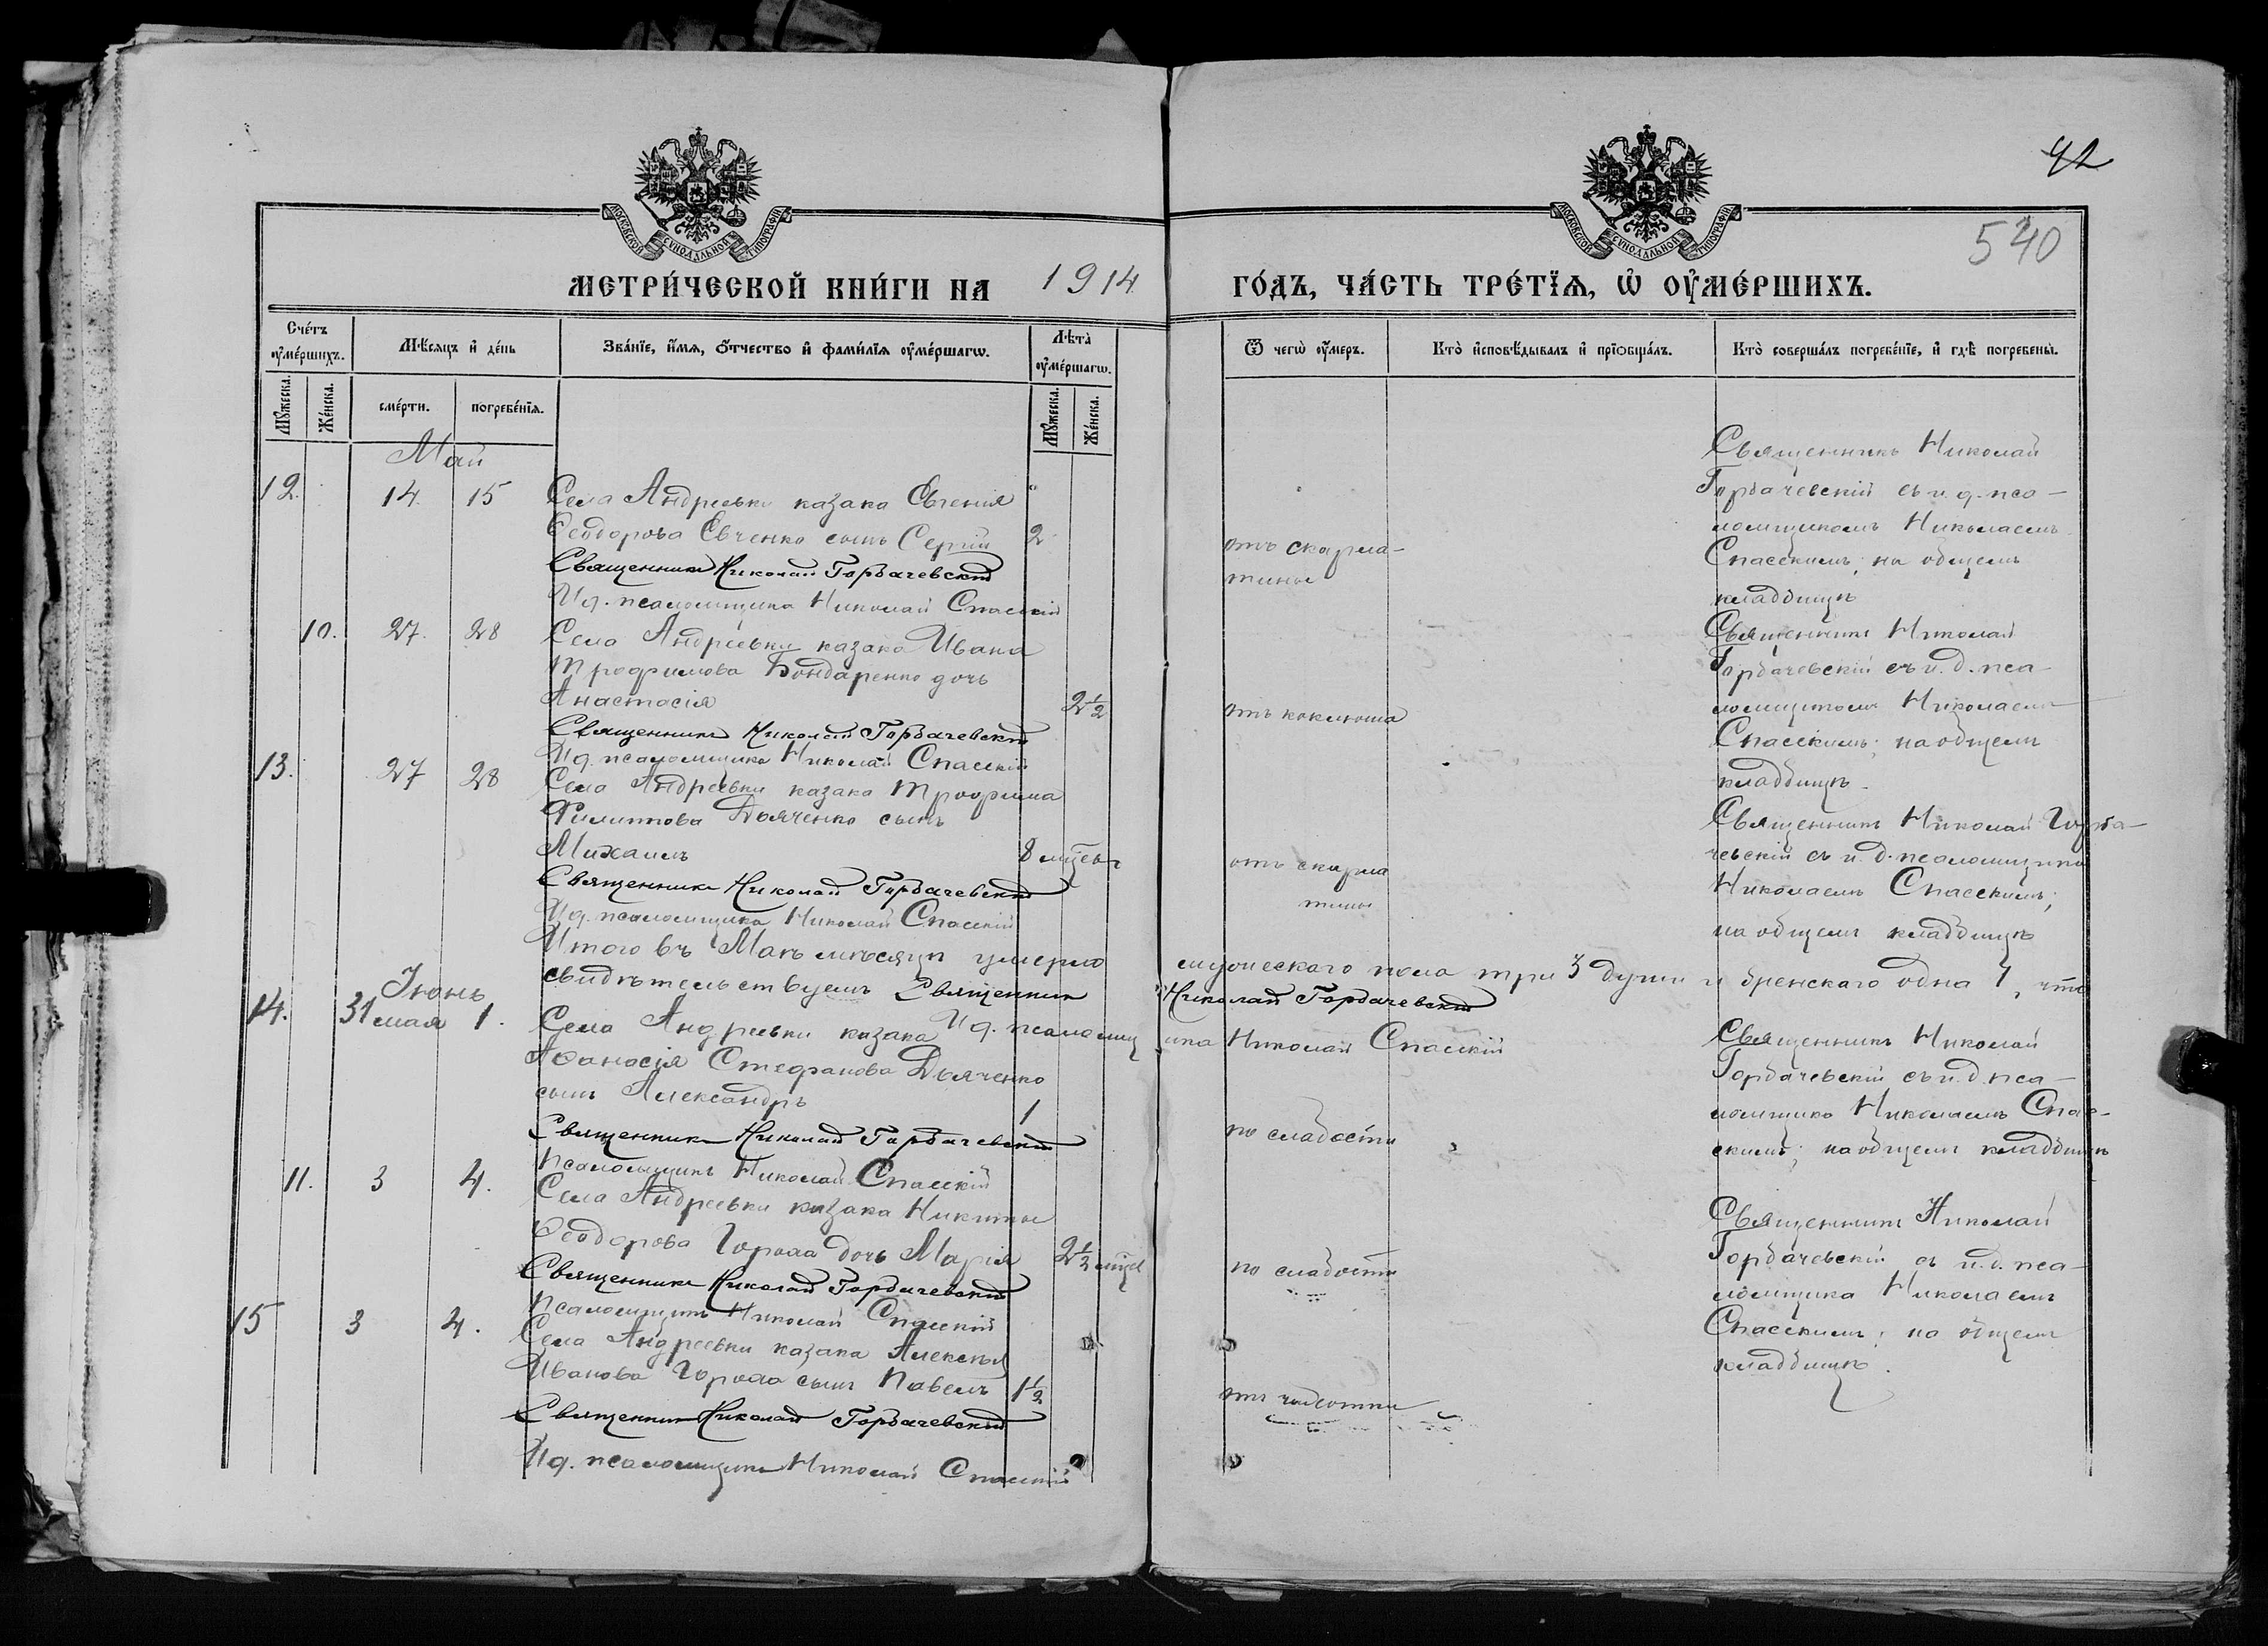 42
540
МОСКОВСКОЙ СѴНОДАЛЬНОЙ ТИПОГРАФІИ
МОСКОВСКОЙ СѴНОДАЛЬНОЙ ТИПОГРАФІИ
МЕТРИ́ЧЕСКОЙ КНИ́ГИ НА 1914 ГО́ДЪ, ЧА́СТЬ ТРЕ́ТЇѦ, Ѡ҆ ОУ҆МЕ́РШИХЪ.
Сче́тъ оу҆ме́ршихъ.
Мѣ́сяцъ и҆ де́нь
Зва́нїе, и҆́мѧ, ѻ҆́тчество и҆ фами́лїѧ оу҆ме́ршагѡ.
Лѣта̀ оу҆ме́ршагѡ.
Ѿ чегѡ̀ оу҆́меръ.
Кто̀ и҆сповѣ́дывалъ и҆ прїѻбща́лъ.
Кто̀ соверша́лъ погребе́нїе, и҆ гдѣ̀ погребены̀.
Мꙋ́жеска.
Же́нска.
сме́рти.
погребе́нїѧ.
Мꙋ́жеска.
Же́нска.
Май
12. 14. 15 Села Андреевки казака Евгенія
Ѳеодорова Евченко сынъ Сергій 2
Священникъ Николай Горбачевскій
И д. псаломщика Николай Спасскій
отъ скарла-
тины
Священникъ Николай
Горбачевскій съ и. д. пса-
ломщикомъ Николаемъ
Спасскимъ; на общемъ
кладбищѣ
10. 27. 28 Села Андреевки казака Ивана
Трофимова Бондаренко дочь
Анастасія 2½
Священникъ Николай Горбачевскій
И д. псаломщика Николай Спасскій
отъ коклюша
Священникъ Николай
Горбачевскій съ и. д. пса-
ломщикомъ Николаемъ
Спасскимъ; на общемъ
кладбищѣ.
13. 27 28 Села Андреевки казака Трофима
Филиппова Дьяченко сынъ
Михаилъ 8 мѣсяц
Священникъ Николай Горбачевскій
И д. псаломщика Николай Спасскій
отъ скарла
тины
Священникъ Николай Горба-
чевскій съ и. д. псаломщика
Николаемъ Спасскимъ;
на общемъ кладбищѣ
Итого въ Маѣ мѣсяцѣ умерло мужескаго пола три 3 души и женскаго одна 1, что
свидѣтельствуемъ Священникъ Николай Горбачевскій
И д. псаломщика Николай Спасскій
Іюнь
14. 31 мая 1. Села Андреевки казака
Аѳанасія Стефанова Дьяченко
сынъ Александръ 1
Священникъ Николай Горбачевскій
Псаломщикъ Николай Спасскій
по слабости
Священникъ Николай
Горбачевскій съ и. д. пса-
ломщика Николаемъ Спас-
скимъ; на общемъ кладбищѣ
11. 3 4. Села Андреевки казака Никиты
Ѳеодорова Гороха дочь Марія 2½ мѣс
Священникъ Николай Горбачевскій
Псаломщикъ Николай Спасскій
по слабости
Священникъ Николай
Горбачевскій съ и. д. пса-
ломщика Николаемъ
Спасскимъ; на общемъ
кладбищѣ.
15 3 4. Села Андреевки казака Алексѣя
Иванова Гороха сынъ Павелъ 1½
Священникъ Николай Горбачевскій
И д. псаломщика Николай Спасскій
отъ чахотки